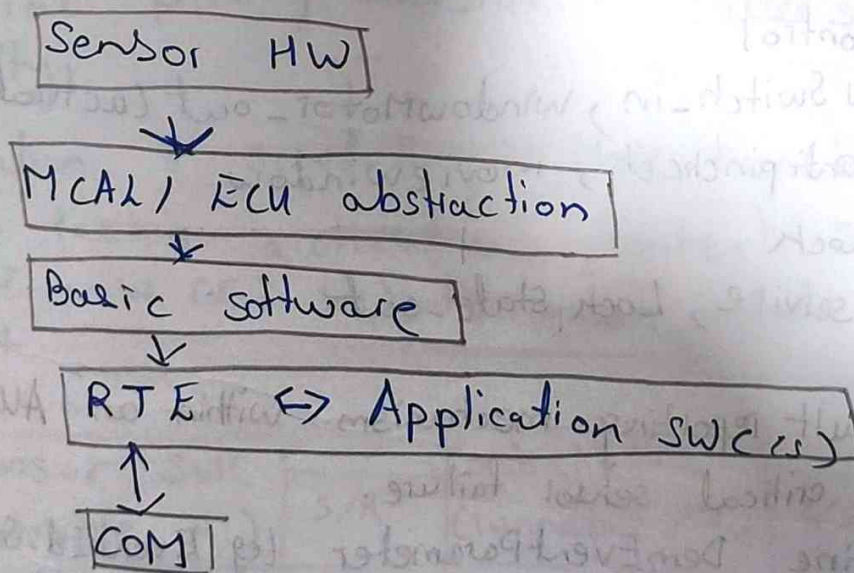 Sensor HW
MCAL / ECU abstraction
Basic software
RTE <-> Application SWC(s)
COM